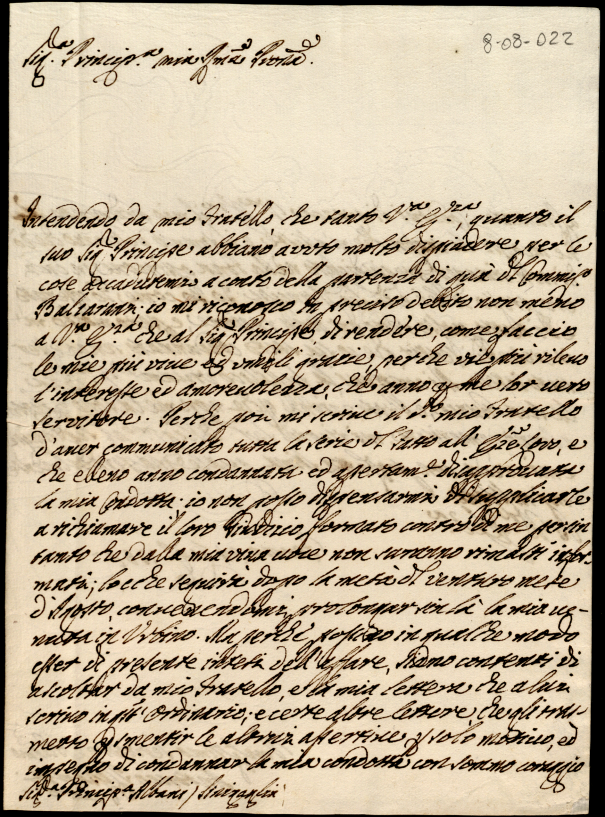 8-08-022
Sig.ra Principessa mia Prona
Intendendo da mio fratello, che tanto V.ra Ecc.za, quanto il
suo Sig.r Principe abbiano avuto molto dispiacere per le
cose accadutemi a conto della partenza di quà del Commiss.
Balzarani; io mi riconosco in preciso debito non meno
a V.ra Ecc.za che al Sig.r Principe, di rendere, come faccio
le mie più vive ed umili grazie, perche viepiù rilevo
l'interesse ed amorevolezza, che anno p me lor vero
servitore. Perche poi mi scrive il d.o mio fratello
d'aver communicato tutta la serie del fatto all' Ecc.ze loro, e
che elleno anno condannata ed apertam.e disapprovata
la mia condotta; io non posso dispensarmi di supplicarle
a richiamare il loro giudizio formato contro di me per in
tanto che dalla mia viva voce non saranno rimasti infor-
mati; locche seguirà dopo la metà del venturo mese
d'Agosto, convenendomi prolongar sin là la mia ve-
nuta in Urbino. Ma perche possano in qualche modo
esser di presente intesi dell'affare, siano contenti di
ascoltar da mio fratello, e la mia lettera che a lui
scrivo in q.to ordinario; e certe altre lettere, che gli tras-
metto p smentir le altrui assertive, p solo motivo, ed
impegno di condannar la mia condotta con sommo coraggio
Sig.ra Principessa Albani / Sinigaglia